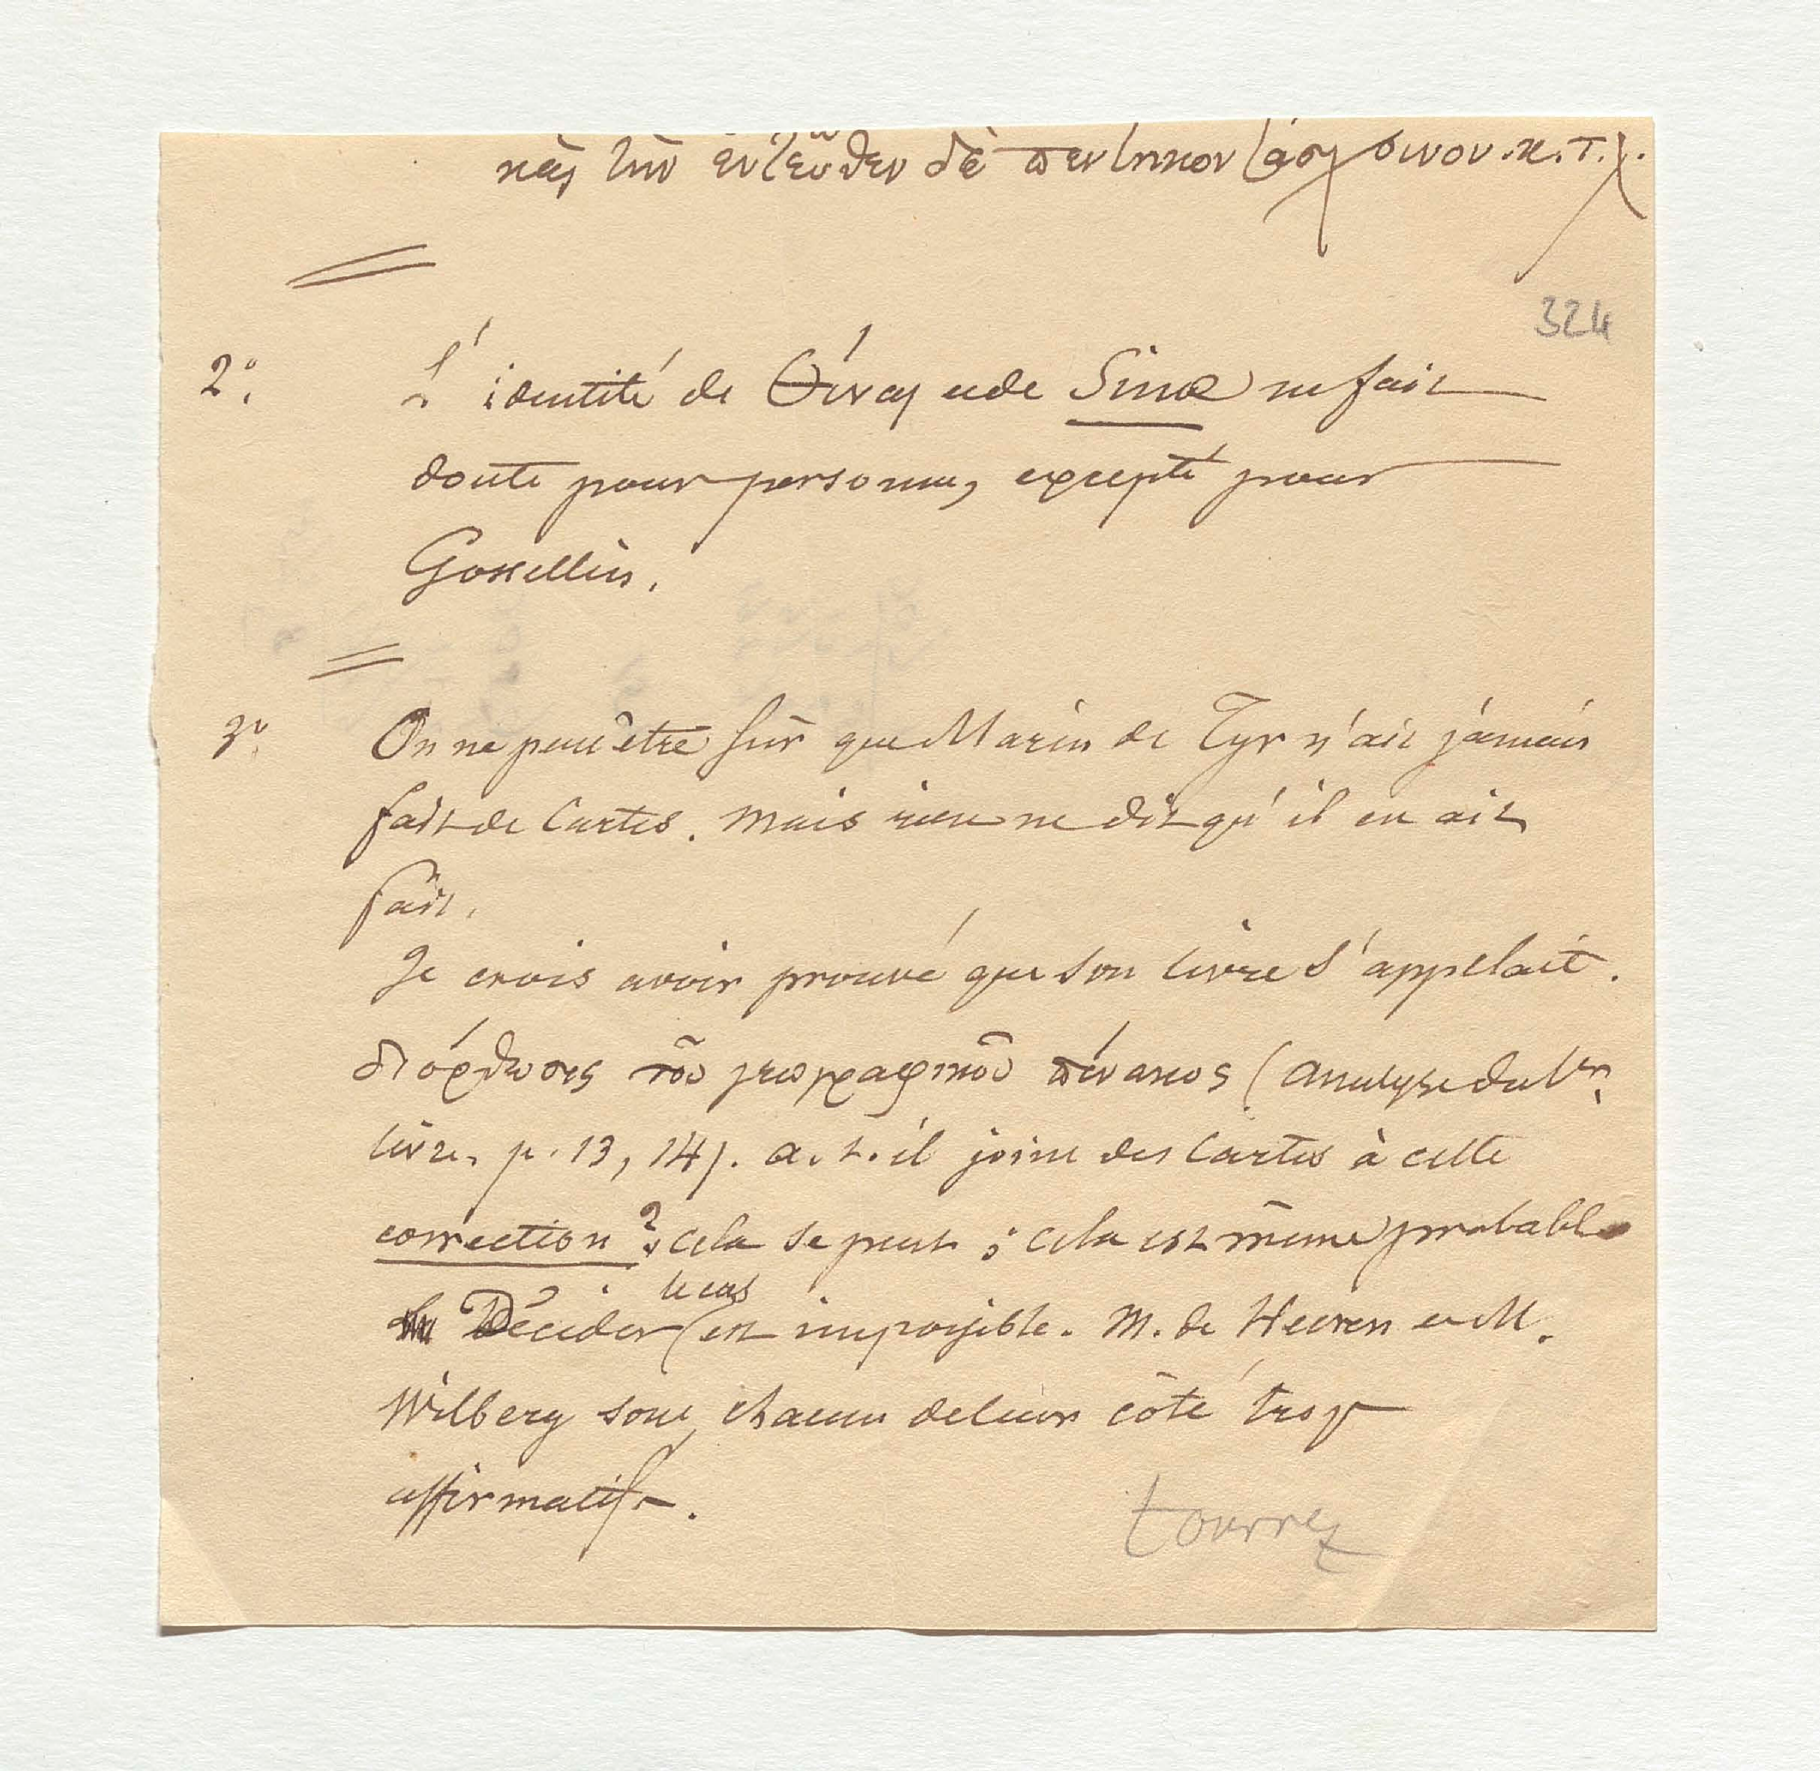 καὶ τὴν ἐντεῦθεν δὲ πεντηκοντάσχοινον. κ. τ. λ.
324
2°. L'identité de Θῖναι et de Sinæ ne fait
doute pour personne, excepté pour
Gossellin.
3° On ne peut être sûr que Marin de Tyr n'ait jamais
fait de Cartes. Mais rien ne dit qu'il en ait
fait.
Je crois avoir prouvé que son livre s'appelait.
διόρθωσις τοῦ γεωγραφικοῦ πίνακος (analyse du 1er.
livre, p. 13, 14). a.t.il joint des Cartes à cette
correction ? cela se peut ; cela est même probable
Décider le cas est impossible. M. de Heeren et M.
Wilberg sont, chacun de leur côté trop
affirmatifs.
tournez